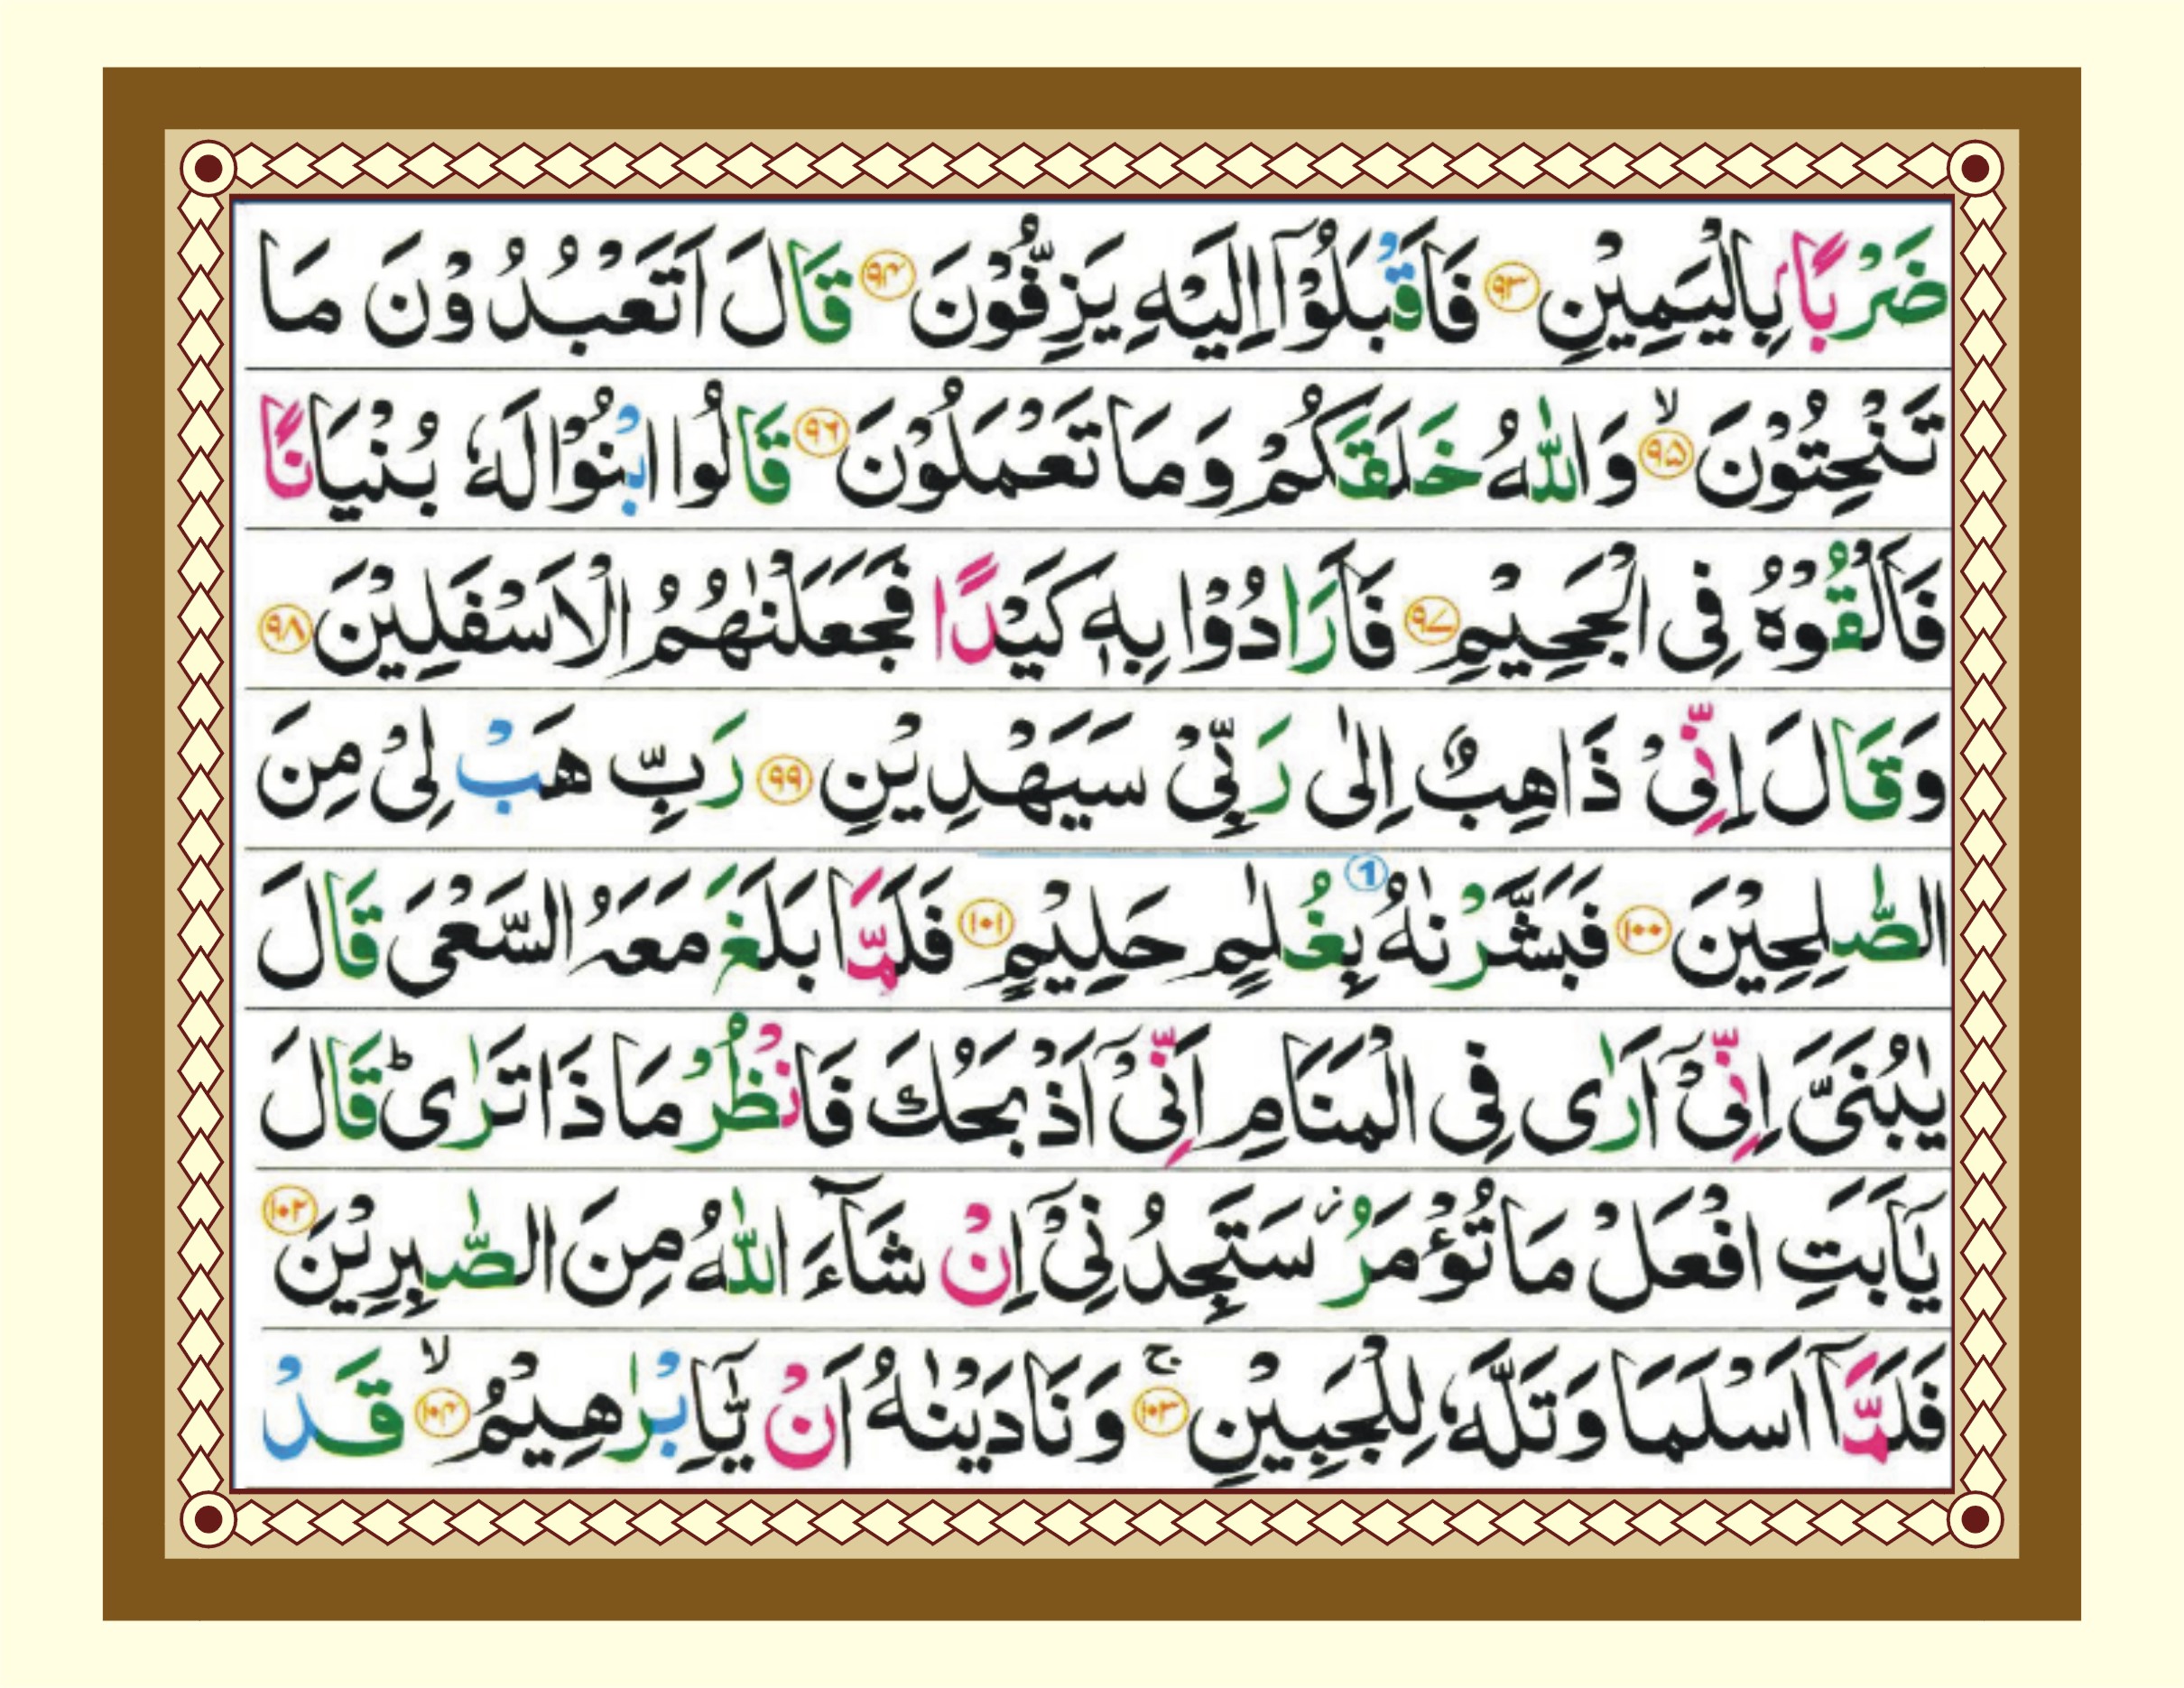 ضَرْبًۢا بِالْيَمِيْنِ ﴿۹۳﴾ فَاَقْبَلُوْۤا اِلَيْهِ يَزِفُّوْنَ ﴿۹۴﴾ قَالَ اَتَعْبُدُوْنَ مَا
تَنْحِتُوْنَ ۙ﴿۹۵﴾ وَاللّٰهُ خَلَقَكُمْ وَمَا تَعْمَلُوْنَ ﴿۹۶﴾ قَالُوا ابْنُوْا لَهٗ بُنْيَانًا
فَاَلْقُوْهُ فِى الْجَحِيْمِ ﴿۹۷﴾ فَاَرَادُوْا بِهٖ كَيْدًا فَجَعَلْنٰهُمُ الْاَسْفَلِيْنَ ﴿۹۸﴾
وَقَالَ اِنِّىْ ذَاهِبٌ اِلٰى رَبِّىْ سَيَهْدِيْنِ ﴿۹۹﴾ رَبِّ هَبْ لِىْ مِنَ
الصّٰلِحِيْنَ ﴿۱۰۰﴾ فَبَشَّرْنٰهُ ① بِغُلٰمٍ حَلِيْمٍ ﴿۱۰۱﴾ فَلَمَّا بَلَغَ مَعَهُ السَّعْىَ قَالَ
يٰبُنَىَّ اِنِّىْۤ اَرٰى فِى الْمَنَامِ اَنِّىْۤ اَذْبَحُكَ فَانْظُرْ مَاذَا تَرٰىؕ قَالَ
يٰۤاَبَتِ افْعَلْ مَا تُؤْمَرُؗ سَتَجِدُنِىْۤ اِنْ شَآءَ اللّٰهُ مِنَ الصّٰبِرِيْنَ ﴿۱۰۲﴾
فَلَمَّاۤ اَسْلَمَا وَتَلَّهٗ لِلْجَبِيْنِ ۚ﴿۱۰۳﴾ وَنَادَيْنٰهُ اَنْ يّٰۤاِبْرٰهِيْمُ ۙ﴿۱۰۴﴾ قَدْ